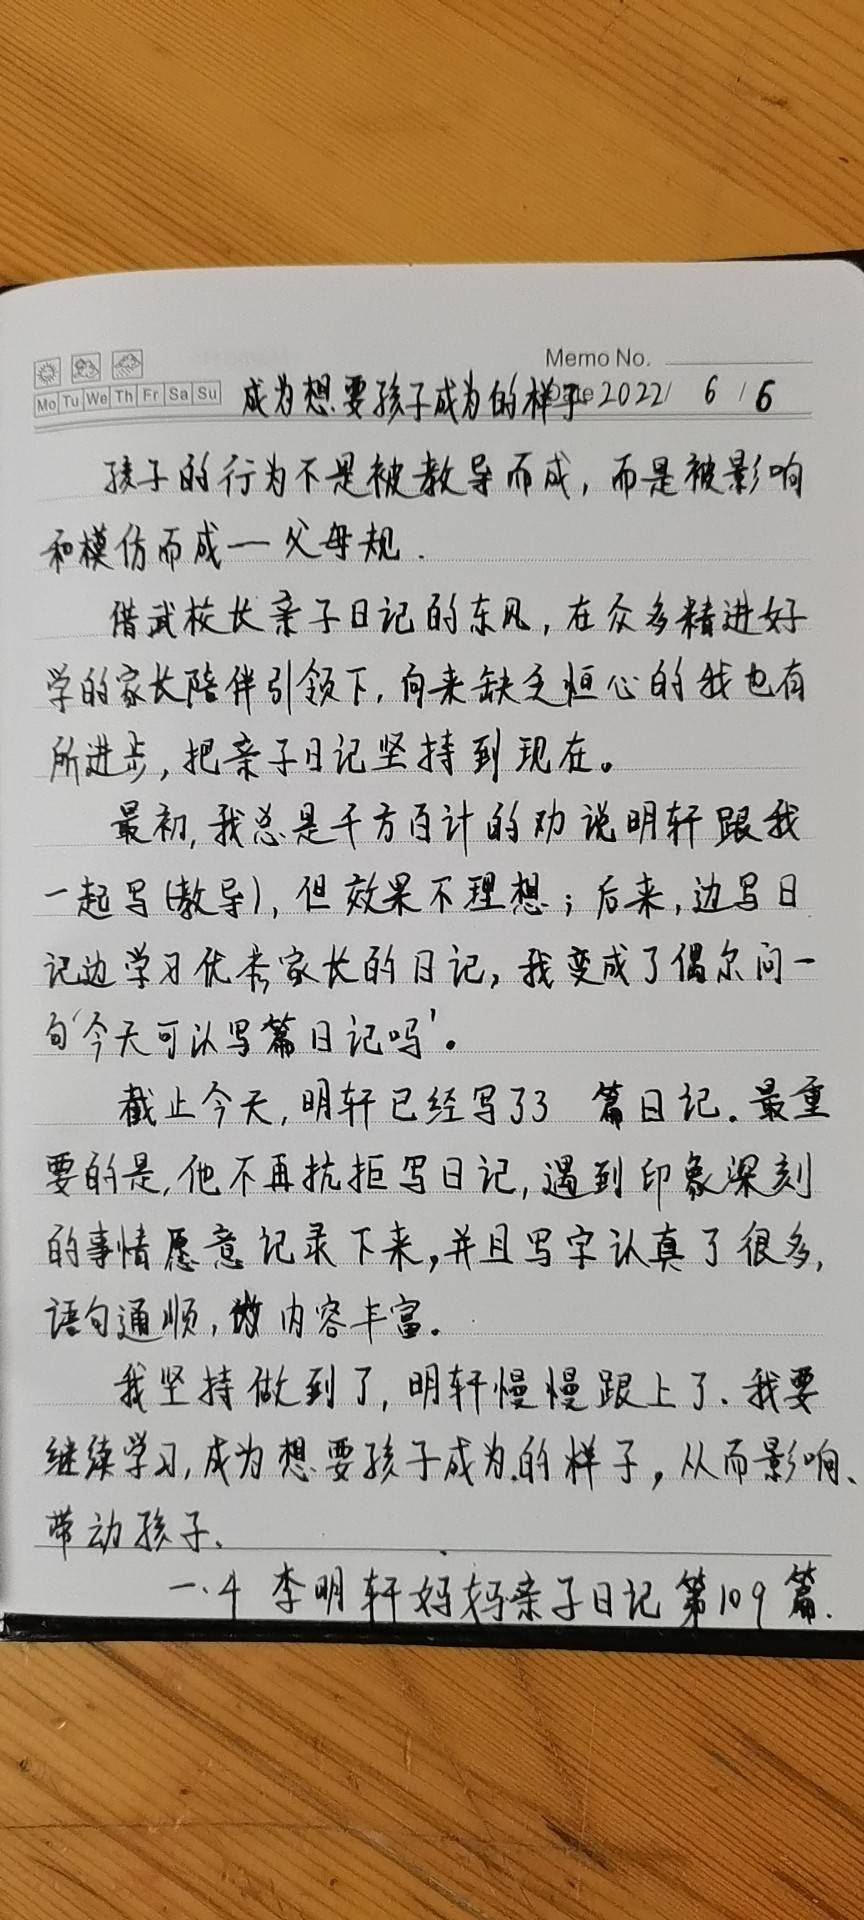 Memo No.
Mo Tu We Th Fr Sa Su
成为想要孩子成为的样子 2022/ 6 / 6
孩子的行为不是被教导而成，而是被影响
和模仿而成一父母规.
借武校长亲子日记的东风，在众多精进好
学的家长陪伴引领下，向来缺乏恒心的我也有
所进步，把亲子日记坚持到现在。
最初，我总是千方百计的劝说明轩跟我
一起写(教导)，但效果不理想；后来，边写日
记边学习优秀家长的日记，我变成了偶尔问一
句‘今天可以写篇日记吗’。
截止今天，明轩已经写了3 篇日记．最重
要的是，他不再抗拒写日记，遇到印象深刻
的事情愿意记录下来，并且写字认真了很多，
语句通顺，内容丰富。
我坚持做到了，明轩慢慢跟上了．我要
继续学习，成为想要孩子成为的样子，从而影响、
带动孩子．
一.4 李明轩妈妈亲子日记第109篇.